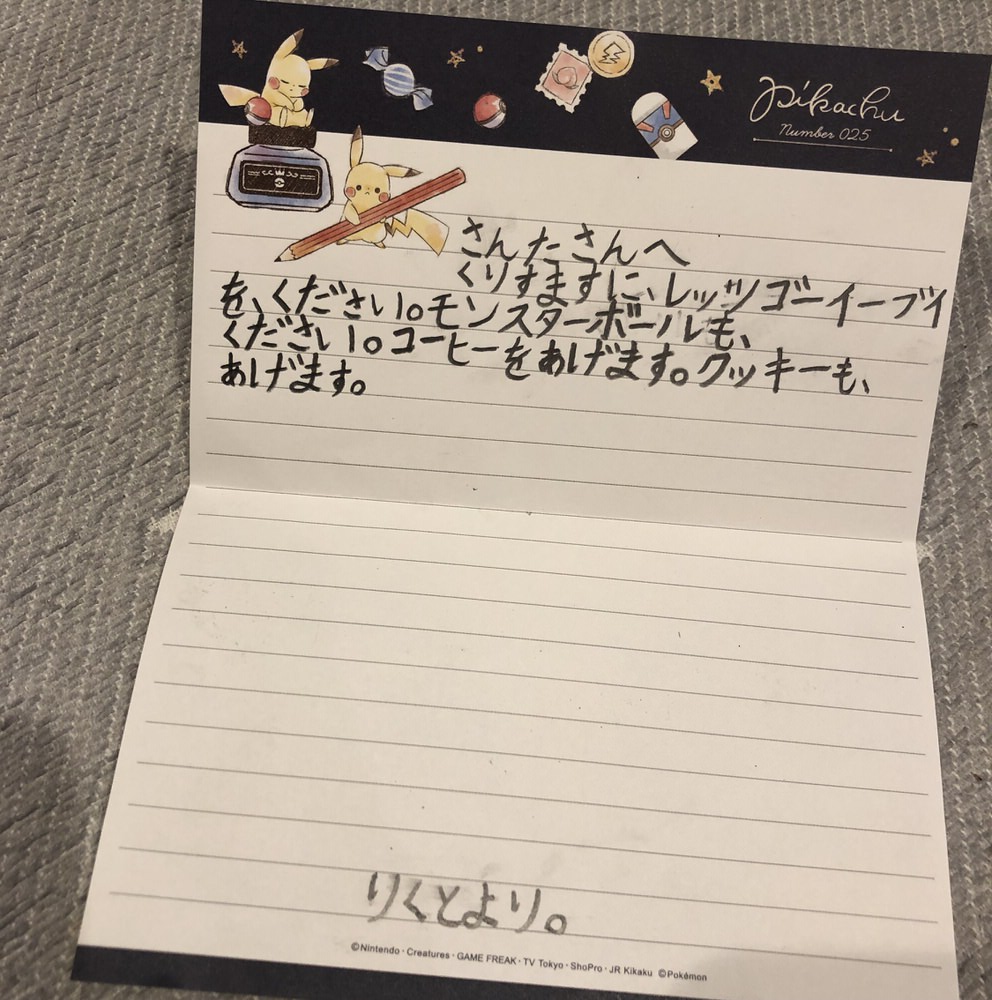 Pikachu
Number 025
さんたさんへ
くりすますに、レッツゴーイーブイ
を、ください。モンスターボールも、
ください。コーヒーをあげます。クッキーも、
あげます。
りくとより。
©Nintendo・Creatures・GAME FREAK・TV Tokyo・ShoPro・JR Kikaku ©Pokémon